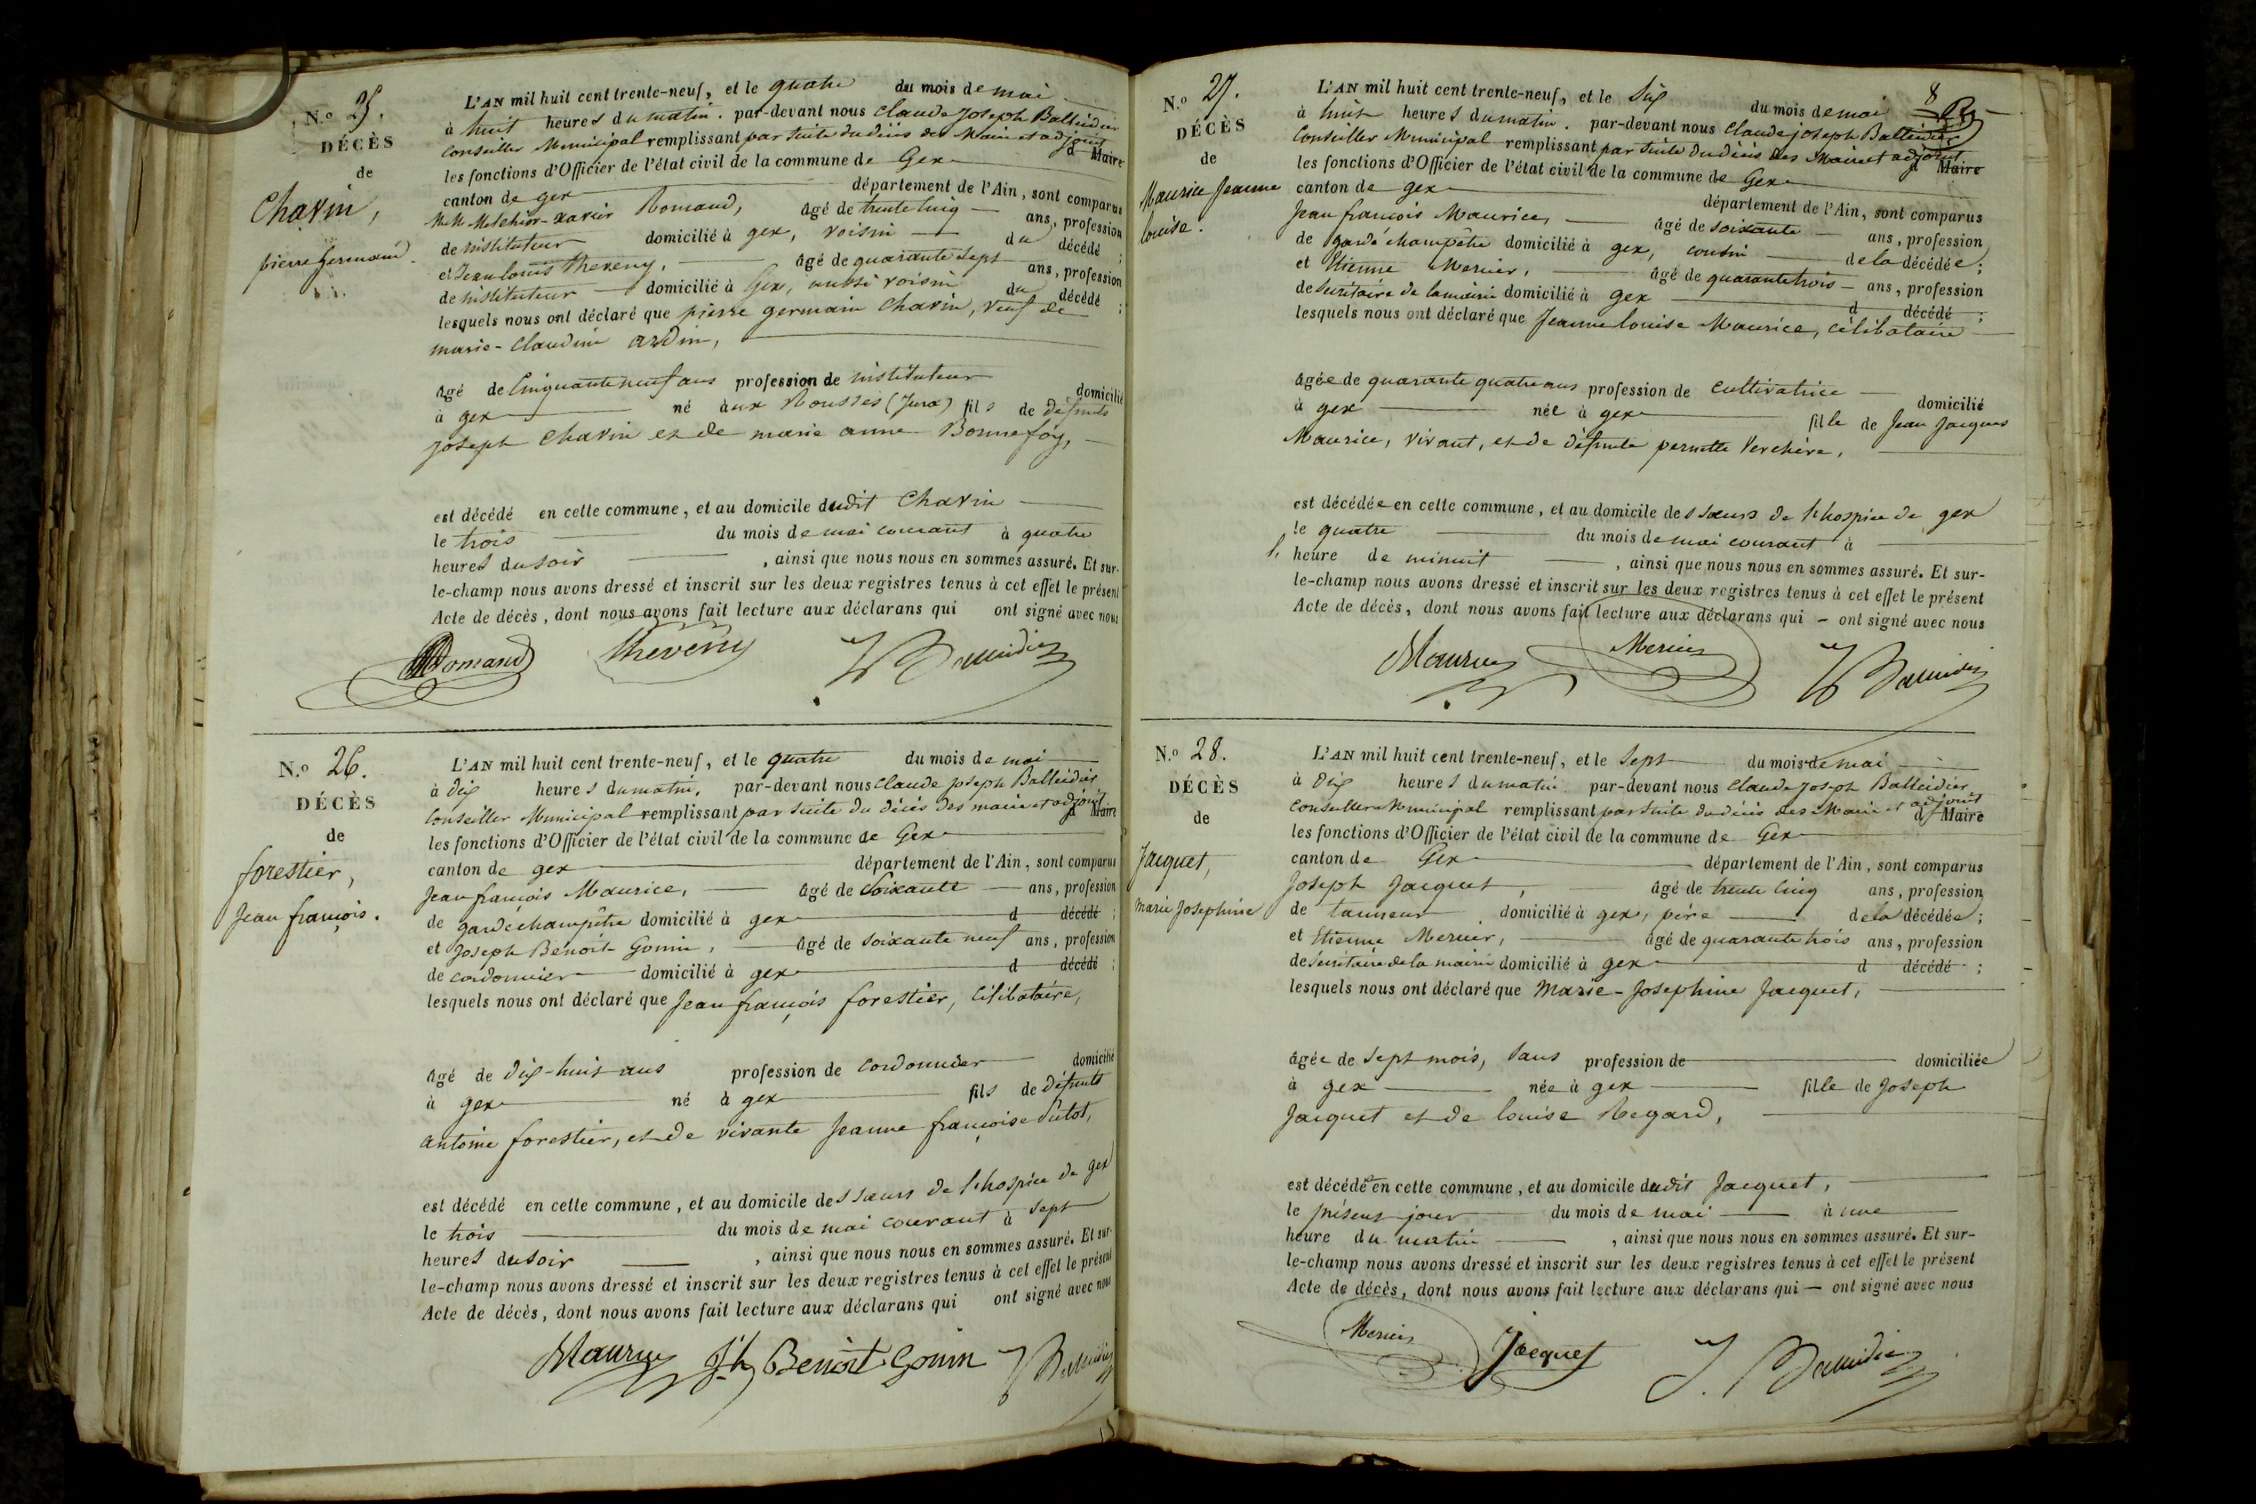 N.º 25.
DÉCÈS
de
Chavin,
pierre germain.
L'AN mil huit cent trente-neuf, et le quatre du mois de mai
à huit heures du matin. par-devant nous Claude Joseph Balleidier
Conseiller Municipal remplissant par suite du décès des Maire et adjoint d Maire
les fonctions d'Officier de l'état civil de la commune de Gex
canton de gex département de l'Ain, sont comparus
M.M. Melchior-Xavier Romand, âgé de trente cinq ans, profession
de instituteur domicilié à gex, voisin du décédé ;
et Jean louis Theveny, âgé de quarante sept ans, profession
de instituteur domicilié à Gex, aussi voisin du décédé ;
lesquels nous ont déclaré que pierre germain Chavin, veuf de
marie-Claudine ardin,
âgé de Cinquante neuf ans profession de instituteur domicilié
à gex né aux Rousses (Jura) fils de défunts
joseph Chavin et de marie anne Bonnefoy,
est décédé en cette commune, et au domicile dudit Chavin
le trois du mois de mai courant à quatre
heures du soir , ainsi que nous nous en sommes assuré. Et sur-
le-champ nous avons dressé et inscrit sur les deux registres tenus à cet effet le présent
Acte de décès, dont nous avons fait lecture aux déclarans qui ont signé avec nous
Romand Theveny Balleidier
N.º 26.
DÉCÈS
de
forestier,
Jean françois.
L'AN mil huit cent trente-neuf, et le quatre du mois de mai
à dix heures du matin. par-devant nous Claude joseph Balleidier
Conseiller Municipal remplissant par suite du décès des maire et adjoint d Maire
les fonctions d'Officier de l'état civil de la commune de Gex
canton de gex département de l'Ain, sont comparus
Jean françois Maurice, âgé de Soixante ans, profession
de garde champêtre domicilié à gex d décédé ;
et Joseph Benoit Gonin, âgé de soixante neuf ans, profession
de cordonnier domicilié à gex d décédé ;
lesquels nous ont déclaré que Jean françois forestier, célibataire,
âgé de dix-huit ans profession de cordonnier domicilié
à gex né à gex fils de défunt
antoine forestier, et de vivante Jeanne françoise dutot,
est décédé en cette commune, et au domicile des sœurs de l'hospice de gex
le trois du mois de mai courant à sept
heures du soir , ainsi que nous nous en sommes assuré. Et sur-
le-champ nous avons dressé et inscrit sur les deux registres tenus à cet effet le présent
Acte de décès, dont nous avons fait lecture aux déclarans qui ont signé avec nous
Maurice Jh Benoit Gonin Balleidier
8
N.º 27.
DÉCÈS
de
Maurice Jeanne
louise.
L'AN mil huit cent trente-neuf, et le Six du mois de mai
à huit heures du matin. par-devant nous Claude joseph Balleidier
Conseiller Municipal remplissant par suite du décès des Maire et adjoint d Maire
les fonctions d'Officier de l'état civil de la commune de Gex
canton de gex département de l'Ain, sont comparus
Jean françois Maurice, âgé de soixante ans, profession
de garde champêtre domicilié à gex, cousin de la décédée ;
et Etienne Mercier, âgé de quarante trois ans, profession
de Secrétaire de la mairie domicilié à gex d décédé ;
lesquels nous ont déclaré que Jeanne louise Maurice, célibataire
âgée de quarante quatre ans profession de cultivatrice domicilié
à gex née à gex fille de Jean Jacques
Maurice, vivant, et de défunte pernette Verchère,
est décédée en cette commune, et au domicile des sœurs de l'hospice de gex
le quatre du mois de mai courant à
l' heure de minuit , ainsi que nous nous en sommes assuré. Et sur-
le-champ nous avons dressé et inscrit sur les deux registres tenus à cet effet le présent
Acte de décès, dont nous avons fait lecture aux déclarans qui ont signé avec nous
Maurice Mercier Balleidier
N.º 28.
DÉCÈS
de
Jacquet,
marie Josephine
L'AN mil huit cent trente-neuf, et le Sept du mois de mai
à dix heures du matin par-devant nous Claude Joseph Balleidier
Conseiller Municipal remplissant par suite du décès des Maire et adjoint d Maire
les fonctions d'Officier de l'état civil de la commune de Gex
canton de Gex département de l'Ain, sont comparus
Joseph Jacquet, âgé de trente cinq ans, profession
de tanneur domicilié à gex, père de la décédée ;
et Etienne Mercier, âgé de quarante trois ans, profession
de Secrétaire de la mairie domicilié à gex d décédé ;
lesquels nous ont déclaré que Marie-Josephine Jacquet,
âgée de sept mois, Sans profession de domiciliée
à gex née à gex fille de Joseph
Jacquet et de louise Regard,
est décédée en cette commune, et au domicile dudit Jacquet,
le présent jour du mois de mai à une
heure du matin , ainsi que nous nous en sommes assuré. Et sur-
le-champ nous avons dressé et inscrit sur les deux registres tenus à cet effet le présent
Acte de décès, dont nous avons fait lecture aux déclarans qui ont signé avec nous
Mercier Jacquet J. Balleidier